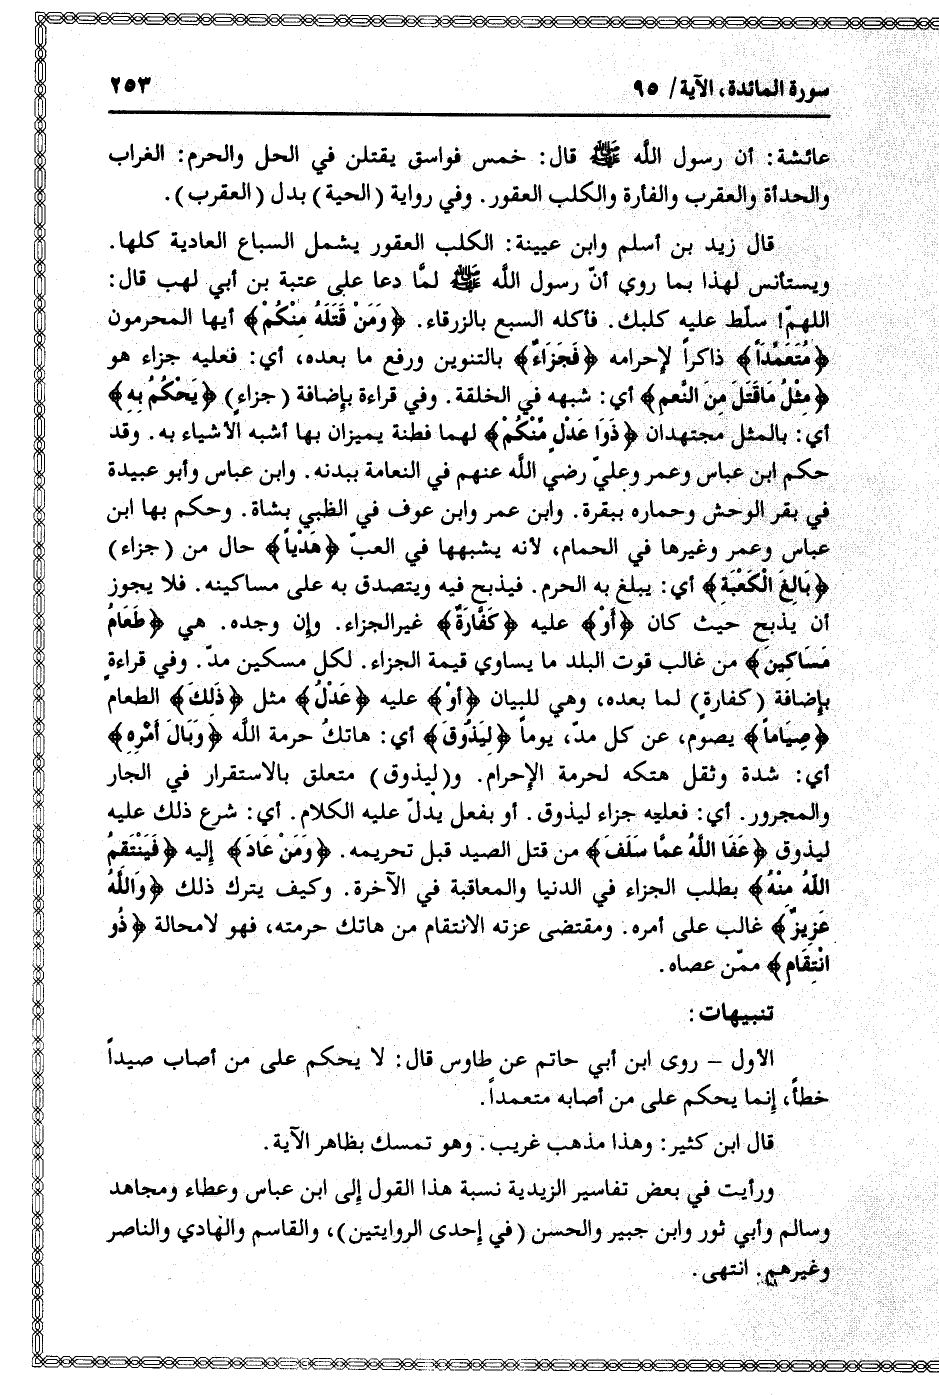 سورة المائدة، الآية/ ٩٥
٢٥٣
عائشة: أن رسول اللَّه ﷺ قال: خمس فواسق يقتلن في الحل والحرم: الغراب
والحدأة والعقرب والفأرة والكلب العقور. وفي رواية (الحية) بدل (العقرب).
قال زيد بن أسلم وابن عيينة: الكلب العقور يشمل السباع العادية كلها.
ويستأنس لهذا بما روي أنّ رسول اللَّه ﷺ لمَّا دعا على عتبة بن أبي لهب قال:
اللهمّ! سلّط عليه كلبك. فأكله السبع بالزرقاء. ﴿وَمَنْ قَتَلَهُ مِنْكُمْ﴾ أيها المحرمون
﴿مُتَعَمِّداً﴾ ذاكراً لإحرامه ﴿فَجَزَاءٌ﴾ بالتنوين ورفع ما بعده، أي: فعليه جزاء هو
﴿مِثْلُ مَاقَتَلَ مِنَ النَّعمِ﴾ أي: شبهه في الخلقة. وفي قراءة بإضافة (جزاء) ﴿يَحْكُمُ بِهِ﴾
أي: بالمثل مجتهدان ﴿ذَوَا عَدْلٍ مِّنْكُمْ﴾ لهما فطنة يميزان بها أشبه الأشياء به. وقد
حكم ابن عباس وعمر وعليّ رضي اللَّه عنهم في النعامة ببدنه. وابن عباس وأبو عبيدة
في بقر الوحش وحماره ببقرة. وابن عمر وابن عوف في الظبي بشاة. وحكم بها ابن
عباس وعمر وغيرها في الحمام، لأنه يشبهها في العبّ ﴿هَدْياً﴾ حال من (جزاء)
﴿بَالِغَ الْكَعْبَةِ﴾ أي: يبلغ به الحرم. فيذبح فيه ويتصدق به على مساكينه. فلا يجوز
أن يذبح حيث كان ﴿أَوْ﴾ عليه ﴿كَفَّارَةٌ﴾ غيرالجزاء. وإن وجده. هي ﴿طَعَامُ
مَسَاكِينَ﴾ من غالب قوت البلد ما يساوي قيمة الجزاء. لكل مسكين مدّ. وفي قراءةٍ
بإضافة (كفارةٍ) لما بعده، وهي للبيان ﴿أوْ﴾ عليه ﴿عَدْلُ﴾ مثل ﴿ذَلِكَ﴾ الطعام
﴿صِيَاماً﴾ يصوم، عن كل مدّ، يوماً ﴿لِيَذُوْقَ﴾ أي: هاتكُ حرمة اللَّه ﴿وَبَالَ أَمْرِهِ﴾
أي: شدة وثقل هتكه لحرمة الإحرام. و(ليذوق) متعلق بالاستقرار في الجار
والمجرور. أي: فعليه جزاء ليذوق. أو بفعل يدلّ عليه الكلام. أي: شرع ذلك عليه
ليذوق ﴿عَفَا اللَّهُ عمَّا سَلَفَ﴾ من قتل الصيد قبل تحريمه. ﴿وَمَنْ عَادَ﴾ إليه ﴿فَيَنْتَقِمُ
اللَّهُ مِنْهُ﴾ بطلب الجزاء في الدنيا والمعاقبة في الآخرة. وكيف يترك ذلك ﴿وَاللَّهُ
عَزِيزٌ﴾ غالب على أمره. ومقتضى عزته الانتقام من هاتك حرمته، فهو لامحالة ﴿ذُو
انْتِقَامٍ﴾ ممّن عصاه.
تنبيهات:
الأول – روى ابن أبي حاتم عن طاوس قال: لا يحكم على من أصاب صيداً
خطأً، إنما يحكم على من أصابه متعمداً.
قال ابن كثير: وهذا مذهب غريب. وهو تمسك بظاهر الآية.
ورأيت في بعض تفاسير الزيدية نسبة هذا القول إلى ابن عباس وعطاء ومجاهد
وسالم وأبي ثور وابن جبير والحسن (في إحدى الروايتين)، والقاسم والهادي والناصر
وغيرهم. انتهى.